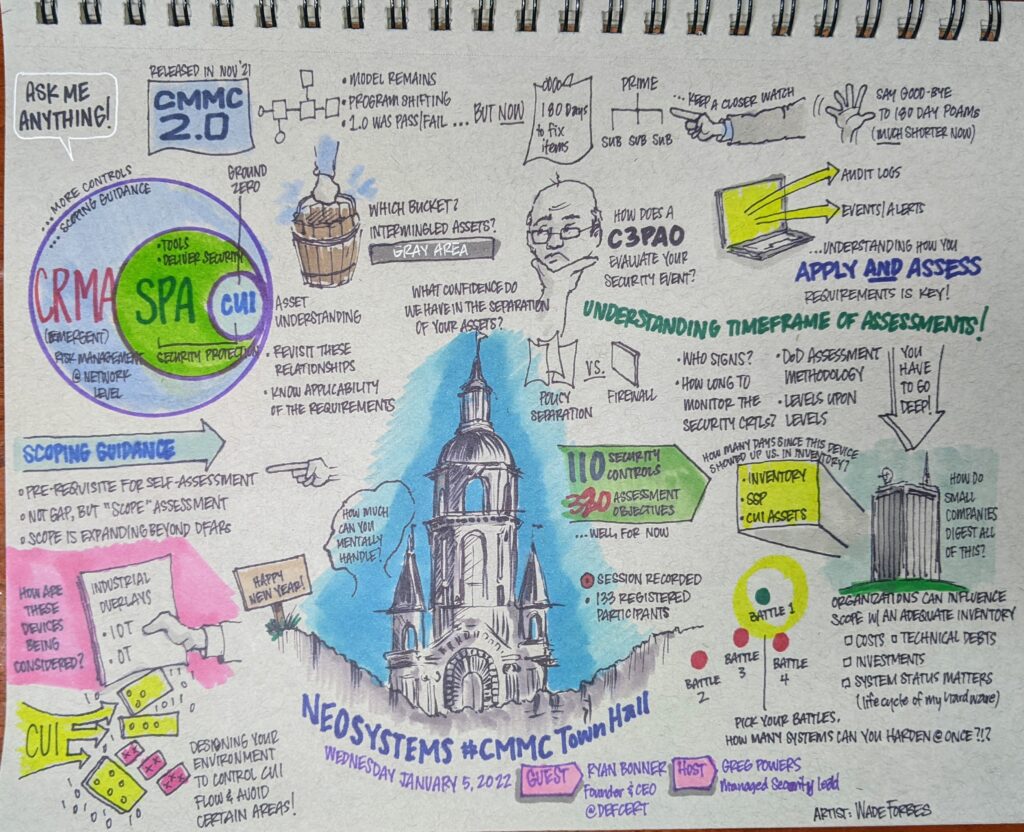 ASK ME
ANYTHING!
RELEASED IN NOV '21
CMMC
2.0
• MODEL REMAINS
• PROGRAM SHIFTING
• 1.0 WAS PASS/FAIL ... BUT NOW
180 Days
to fix
items
PRIME
SUB SUB SUB
...KEEP A CLOSER WATCH
SAY GOOD-BYE
TO 180 DAY POAMS
(MUCH SHORTER NOW)
... MORE CONTROLS
... SCOPING GUIDANCE
GROUND
ZERO
• TOOLS
• DELIVER SECURITY
CRMA
SPA
CUI
(EMERGENT)
RISK MANAGEMENT
@ NETWORK
LEVEL
SECURITY PROTECTION
WHICH BUCKET?
INTERMINGLED ASSETS?
GRAY AREA
ASSET
UNDERSTANDING
• REVISIT THESE
RELATIONSHIPS
• KNOW APPLICABILITY
OF THE REQUIREMENTS
WHAT CONFIDENCE DO
WE HAVE IN THE SEPARATION
OF YOUR ASSETS?
HOW DOES A
C3PAO
EVALUATE YOUR
SECURITY EVENT?
AUDIT LOGS
EVENTS/ALERTS
...UNDERSTANDING HOW YOU
APPLY AND ASSESS
REQUIREMENTS IS KEY!
UNDERSTANDING TIMEFRAME OF ASSESSMENTS!
POLICY
SEPARATION
VS.
FIREWALL
• WHO SIGNS?
• HOW LONG TO
MONITOR THE
SECURITY CRTLS?
• DoD ASSESSMENT
METHODOLOGY
• LEVELS UPON
LEVELS
YOU
HAVE
TO GO
DEEP!
SCOPING GUIDANCE
• PRE-REQUISITE FOR SELF-ASSESSMENT
• NOT GAP, BUT "SCOPE" ASSESSMENT
• SCOPE IS EXPANDING BEYOND DFARS
HOW MUCH
CAN YOU
MENTALLY
HANDLE?
110 SECURITY
CONTROLS
320 ASSESSMENT
OBJECTIVES
...WELL, FOR NOW
HOW MANY DAYS SINCE THIS DEVICE
SHOWED UP VS. IN INVENTORY?
• INVENTORY
• SSP
• CUI ASSETS
HOW DO
SMALL
COMPANIES
DIGEST ALL
OF THIS?
HOW ARE
THESE
DEVICES
BEING
CONSIDERED?
INDUSTRIAL
OVERLAYS
• IOT
• OT
HAPPY
NEW YEAR!
• SESSION RECORDED
• 133 REGISTERED
PARTICIPANTS
BATTLE 1
BATTLE
2
BATTLE
3
BATTLE
4
PICK YOUR BATTLES.
HOW MANY SYSTEMS CAN YOU HARDEN @ ONCE?!?
ORGANIZATIONS CAN INFLUENCE
SCOPE W/ AN ADEQUATE INVENTORY
□ COSTS □ TECHNICAL DEBTS
□ INVESTMENTS
□ SYSTEM STATUS MATTERS
(life cycle of my hardware)
CUI
DESIGNING YOUR
ENVIRONMENT
TO CONTROL CUI
FLOW & AVOID
CERTAIN AREAS!
NEOSYSTEMS #CMMC Town Hall
WEDNESDAY JANUARY 5, 2022
GUEST
RYAN BONNER
Founder & CEO
@DEFCERT
HOST
GREG POWERS
Managed Security Lead
ARTIST: WADE FORBES